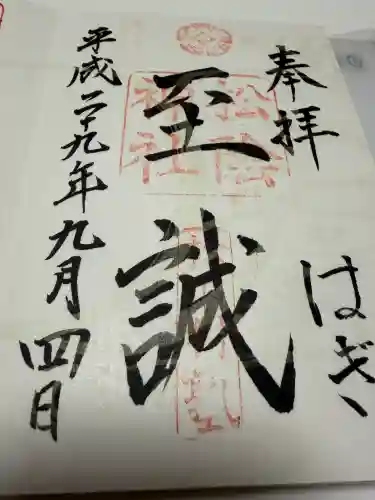 奉拝
はぎ
松陰神社
至誠
平成二十九年九月四日